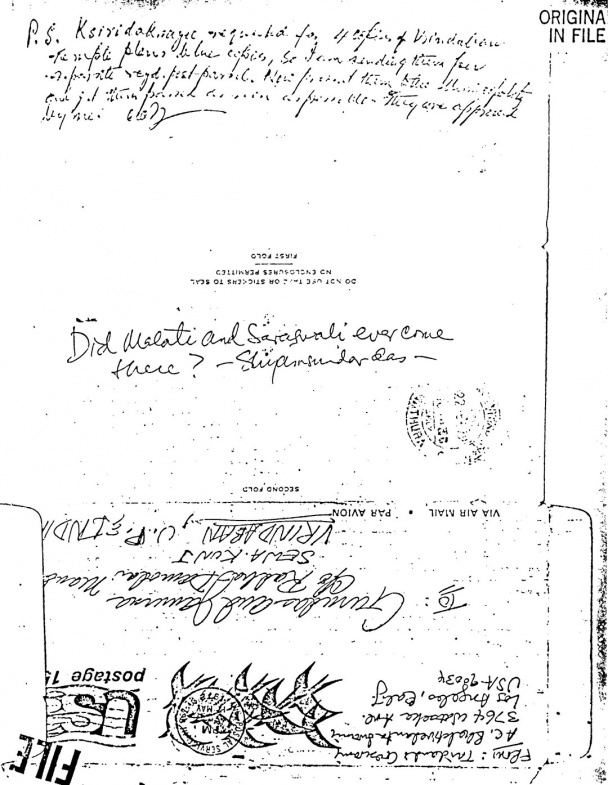 ORIGINA
IN FILE
P.S. Ksiridaknayee requested for 4 copies of Vrindaban
temple plans blue copies, so I am sending them per
separate regd. post parcel. Now present them to the municipality
and get them passed as soon as possible. They are approved
by me.
DO NOT USE TAPE OR STICKERS TO SEAL
NO ENCLOSURES PERMITTED
FIRST FOLD
Did Malati and Sarasvati ever come
there? — Shyamsundar das —
MATHURA
SECOND FOLD
VIA AIR MAIL • PAR AVION
To: Gurudas and Jamuna
c/o Radha Damodar
SEVA KUNJ
VRINDABAN, U.P. INDI
USA
postage 15
From: Tridandi Goswami
A.C. Bhaktivedanta Swami
3764 Watseka Ave.
Los Angeles, Calif
USA 90034
FILE